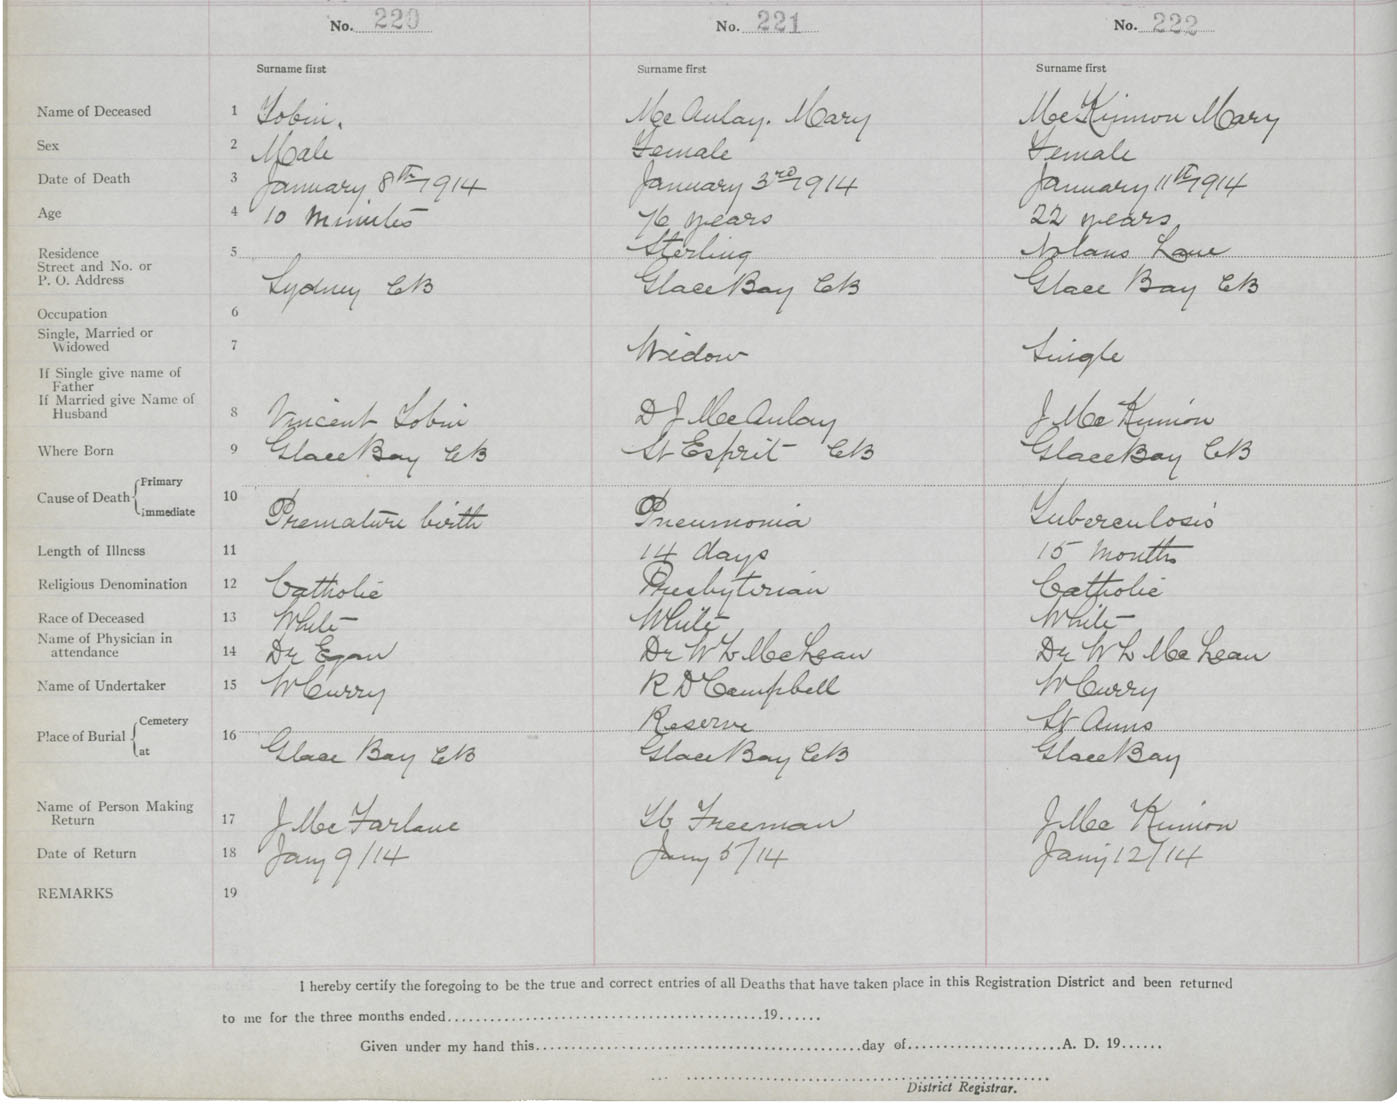 No. 220 No. 221 No. 222
Surname first Surname first Surname first
Name of Deceased 1 Tobin. McAulay. Mary McKinnon Mary
Sex 2 Male Female Female
Date of Death 3 January 8th 1914 January 3rd 1914 January 11th 1914
Age 4 10 minutes 76 years 22 years
Residence 5 Sterling Nolans Lane
Street and No. or
P. O. Address Sydney CB Glace Bay CB Glace Bay CB
Occupation 6
Single, Married or
Widowed 7 Widow Single
If Single give name of
Father
If Married give Name of
Husband 8 Vincent Tobin D J McAulay J McKinnon
Where Born 9 Glace Bay CB St Esprit CB Glace Bay CB
Cause of Death Primary
immediate 10 Premature birth Pneumonia Tuberculosis
Length of Illness 11 14 days 15 months
Religious Denomination 12 Catholic Presbyterian Catholic
Race of Deceased 13 White White White
Name of Physician in
attendance 14 Dr Egan Dr W L McLean Dr W L McLean
Name of Undertaker 15 W Curry R D Campbell W Curry
Place of Burial Cemetery 16 Reserve St Anns
at Glace Bay CB Glace Bay CB Glace Bay
Name of Person Making
Return 17 J McFarlane Freeman J McKinnon
Date of Return 18 Jany 9/14 Jany 5/14 Jany 12/14
REMARKS 19
I hereby certify the foregoing to be the true and correct entries of all Deaths that have taken place in this Registration District and been returned
to me for the three months ended 19
Given under my hand this day of A. D. 19
District Registrar.